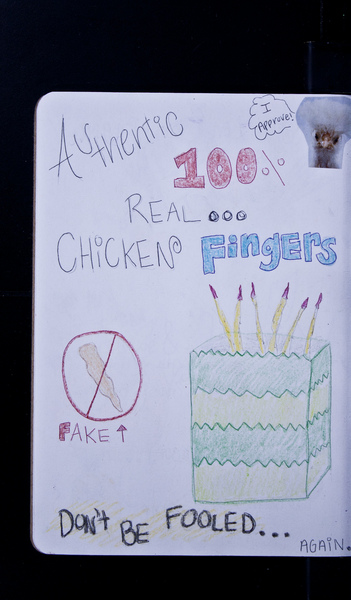 I
Approve!
Authentic
100%
REAL...
CHiCKEN
FiNGERS
FAKE ↑
DON'T BE FOOLED...
AGAIN.